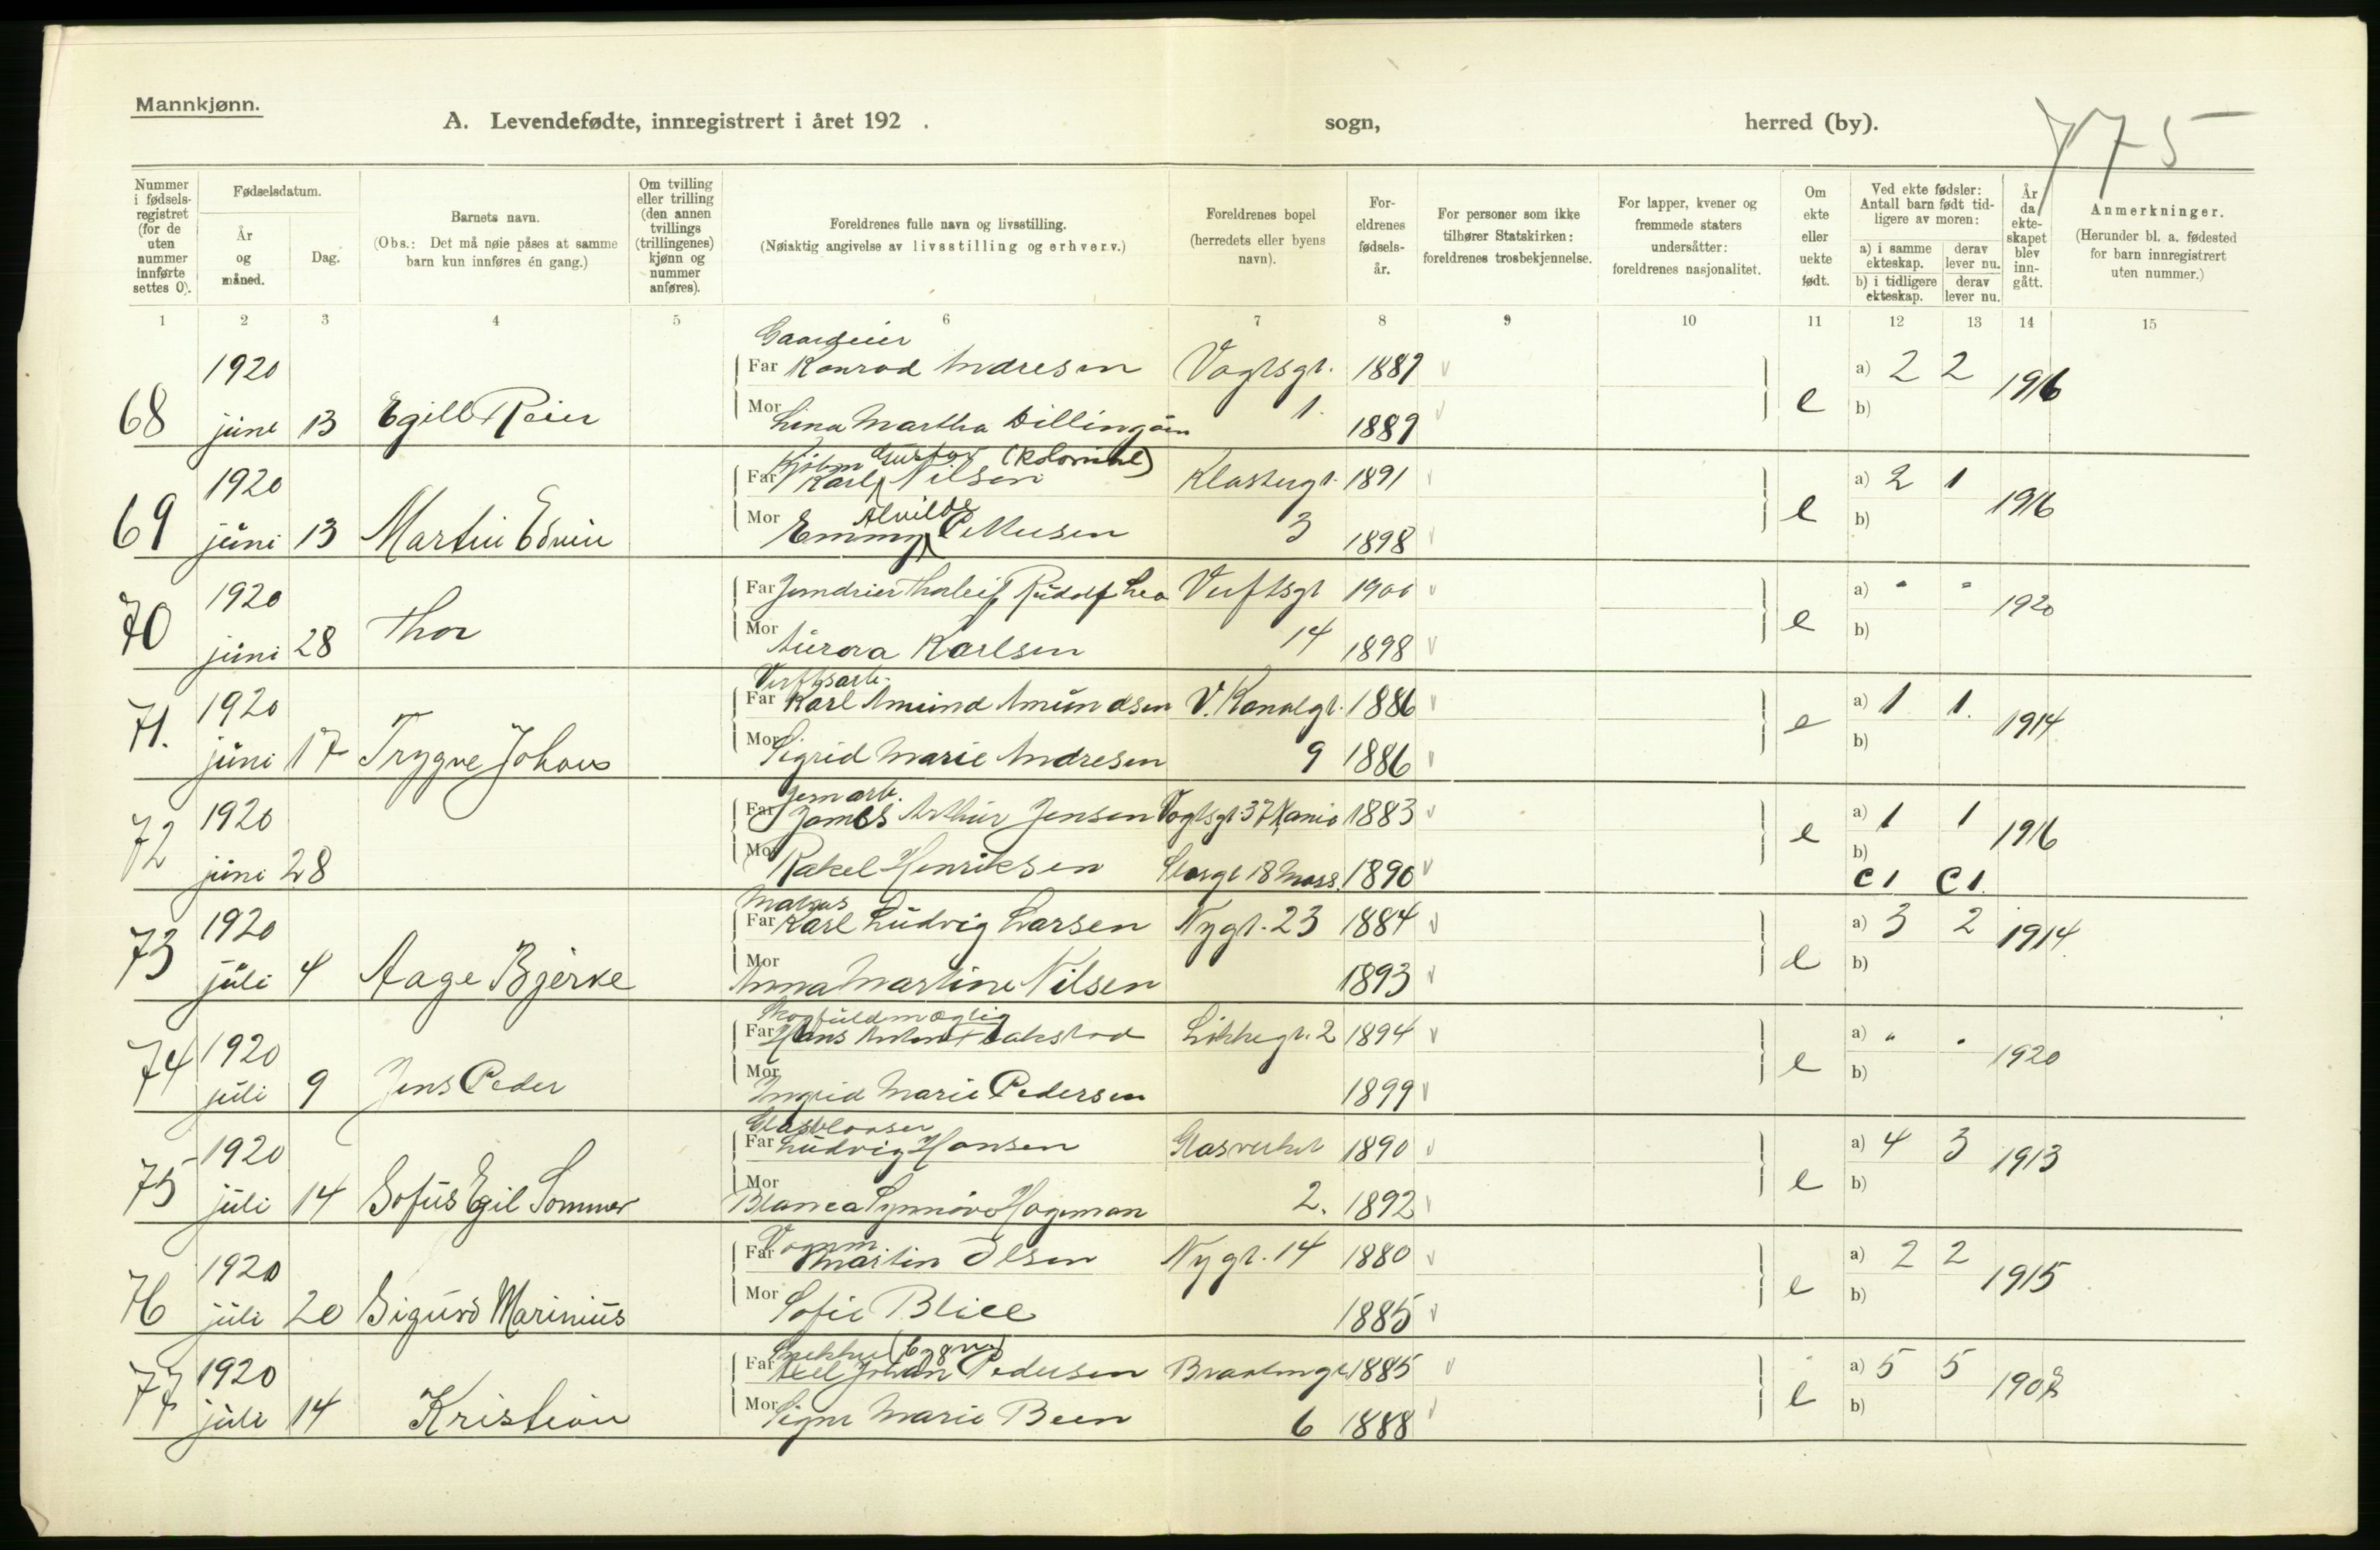 Mannkjønn.
A. Levendefødte, innregistrert i året 192 . sogn, herred (by).
775
Nummer i fødsels-registret (for de uten nummer innførte settes 0).
Fødselsdatum.
År og måned.
Dag.
Barnets navn.
(Obs.: Det må nøie påses at samme barn kun innføres én gang.)
Om tvilling eller trilling (den annen tvillings (trillingenes) kjønn og nummer anføres).
Foreldrenes fulle navn og livsstilling.
(Nøiaktig angivelse av livsstilling og erhverv.)
Foreldrenes bopel (herredets eller byens navn).
For-eldrenes fødsels-år.
For personer som ikke tilhører Statskirken: foreldrenes trosbekjennelse.
For lapper, kvener og fremmede staters undersåtter: foreldrenes nasjonalitet.
Om ekte eller uekte født.
Ved ekte fødsler: Antall barn født tid-ligere av moren:
a) i samme ekteskap. derav lever nu.
b) i tidligere ekteskap. derav lever nu.
År da ekte-skapet blev inn-gått.
Anmerkninger.
(Herunder bl. a. fødested for barn innregistrert uten nummer.)
1 2 3 4 5 6 7 8 9 10 11 12 13 14 15
Gaardeier
1920 Far Konrad Andresen Vogtsgt. 1887 a) 2 2 1916
68 june 13 Egill Reier Mor Lina Martha Dillingøen 1. 1889 e b)
Kjøbm Gustav (Kolonial)
1920 Far Karl Nilsen Klostergt. 1891 a) 2 1 1916
Alvilde
69 juni 13 Martin Edvin Mor Emmy Pettersen 3 1898 e b)
1920 Far Thorleif Rudolf Leo Verftsgt 1900 a) " " 1920
70 juni 28 Thor Mor Aurora Karlsen 14 1898 e b)
Verftsarb.
1920 Far Karl Amund Amundsen V. Kanalgt. 1886 a) 1 1. 1914
71. juni 17 Trygve Johans Mor Sigrid Marie Andresen 9 1886 e b)
Jernarb.
1920 Far James Arthur Jensen Vogtsgt 37 1883 a) 1 1 1916
72 juni 28 Mor Rakel Henriksen Storgt 18 Moss. 1890 e b)
c 1 c 1.
Matros
1920 Far Karl Ludvig Larsen Nygt. 23 1884 a) 3 2 1914.
73 juli 4 Aage Bjerke Mor Anna Martine Nilsen 1893 e b)
1920 Far Hans Anton 2 1894 a) " " 1920
74 juli 9 Jens Peder Mor Ingrid Marie Pedersen 1899 e b)
Glasblaaser
1920 Far Ludvig Hansen Glasverket 1890 a) 4 3 1913
75 juli 14 Sofus Egil Sommer Mor Blanca Synnøve Hageman 2. 1892 e b)
Vognm
1920 Far Martin Olsen Nygt. 14 1880 a) 2 2 1915
76 juli 20 Sigurd Marinius Mor Sofie Blice 1885 e b)
Snekker
1920 Far Axel Johan Pedersen 1885 a) 5 5 1908
77 juli 14 Kristian Mor Signe Marie Been 6 1888 e b)